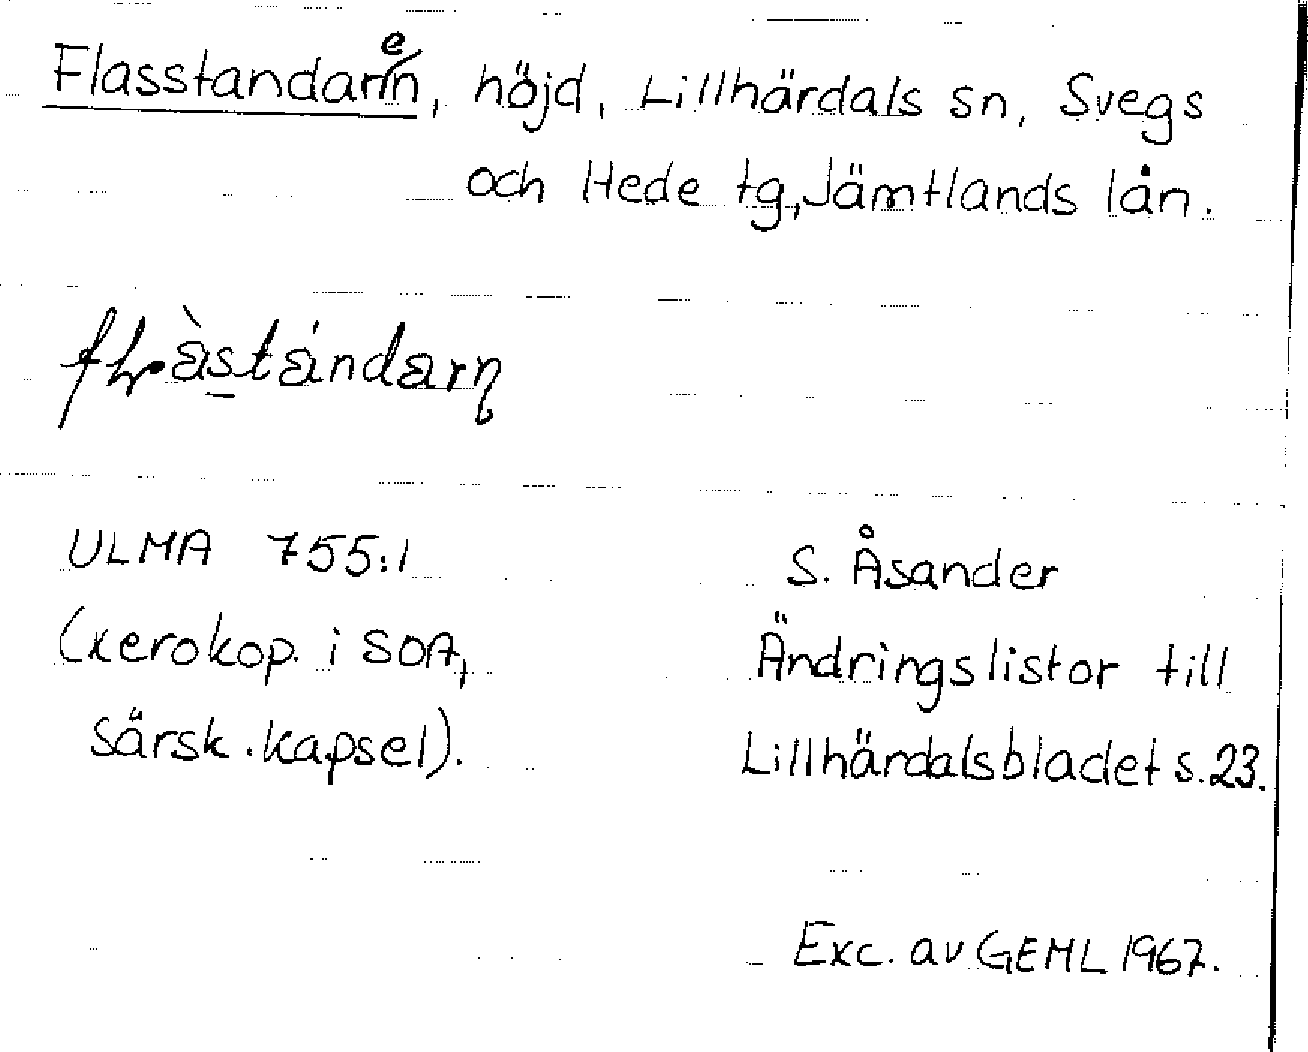 Flasstandaren, höjd, Lillhärdals sn, Svegs
och Hede tg, Jämtlands län.
ULMA 755:1
(xerokop. i SOA,
särsk. kapsel).
S. Åsander
Ändringslistor till
Lillhärdalsbladet s. 23.
Exc. av GEML 1967.